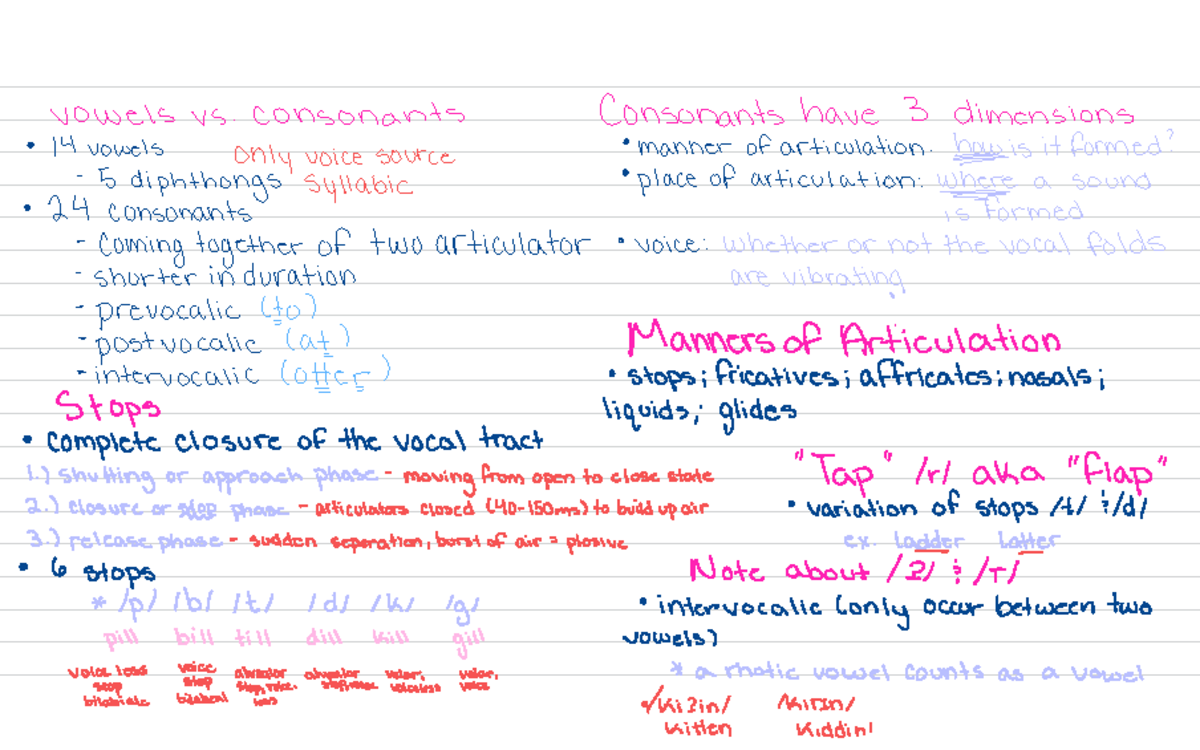 vowels vs. consonants
• 14 vowels
only voice source
- 5 diphthongs
syllabic
• 24 consonants
- Coming together of two articulator
- shorter in duration
- prevocalic (to)
- postvocalic (at)
- intervocalic (otter)
Stops
• complete closure of the vocal tract
1.) shutting or approach phase - moving from open to close state
2.) closure or stop phase - articulators closed (40-150ms) to build up air
3.) release phase - sudden seperation, burst of air = plosive
• 6 stops
* /p/ /b/ /t/ /d/ /k/ /g/
pill bill till dill kill gill
voice less stop bilabiale
voice stop bilabial
alveolar stop, voice. less
alveolar stop, voice
velar, voiceless
velar, voice
Consonants have 3 dimensions
• manner of articulation. how is it formed?
• place of articulation: where a sound
is formed
• voice: whether or not the vocal folds
are vibrating
Manners of Articulation
• stops; fricatives; affricates; nasals;
liquids; glides
"Tap" /r/ aka "flap"
• variation of stops /t/ & /d/
ex. ladder latter
Note about /ʔ/ & /r/
• intervocalic (only occur between two
vowels)
* a rhotic vowel counts as a vowel
kitten kiddin'